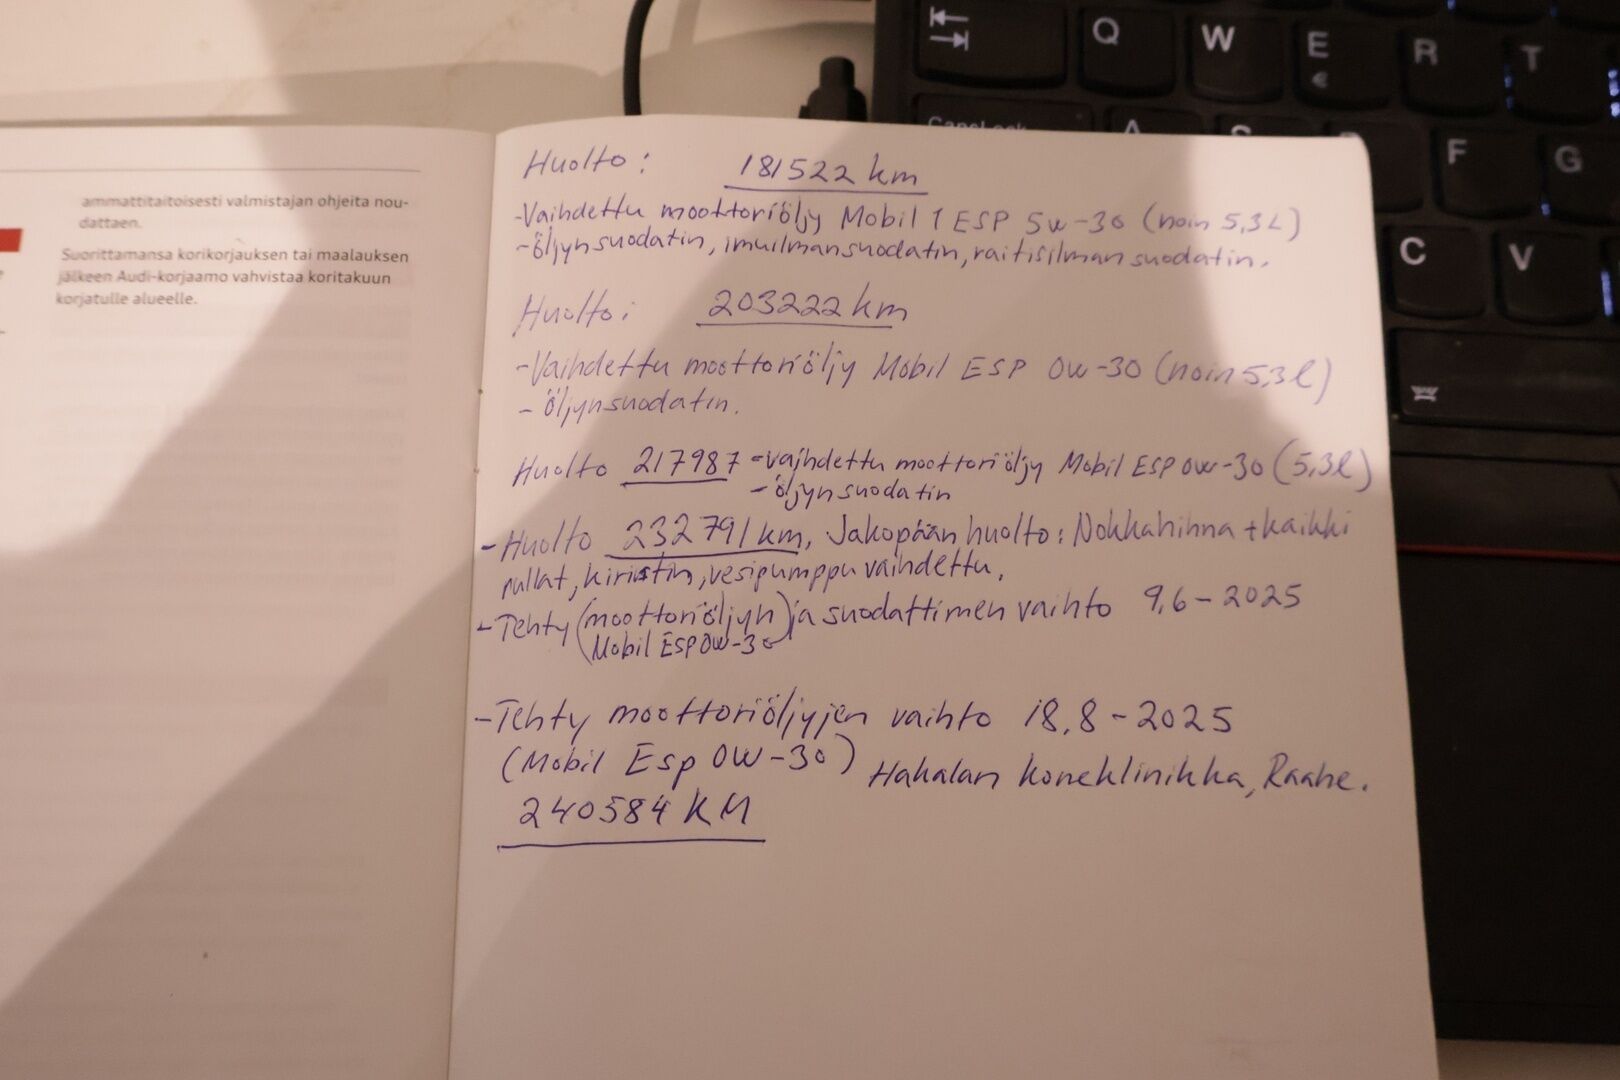 ammattitaitoisesti valmistajan ohjeita nou-
dattaen.
Suorittamansa korikorjauksen tai maalauksen
jälkeen Audi-korjaamo vahvistaa koritakuun
korjatulle alueelle.
Huolto: 181522 km
-Vaihdettu moottoriöljy Mobil 1 ESP 5w-30 (noin 5,3L)
-öljynsuodatin, imuilmansuodatin, raitisilmansuodatin.
Huolto: 203222 km
-Vaihdettu moottoriöljy Mobil ESP 0w-30 (noin 5,3l)
- öljynsuodatin.
Huolto 217987 -vaihdettu moottoriöljy Mobil ESP 0w-30 (5,3l)
- öljynsuodatin
- Huolto 232791 km, Jakopään huolto: Nokkahihna + kaikki
rullat, kiristin, vesipumppu vaihdettu.
- Tehty (moottoriöljyn) ja suodattimen vaihto 9.6-2025
(Mobil ESP 0w-30)
- Tehty moottoriöljyjen vaihto 18.8-2025
(Mobil Esp 0W-30) Hakalan koneklinikka, Raahe.
240584 KM
Q W E R T
€
CapsLock A S D F G
C V